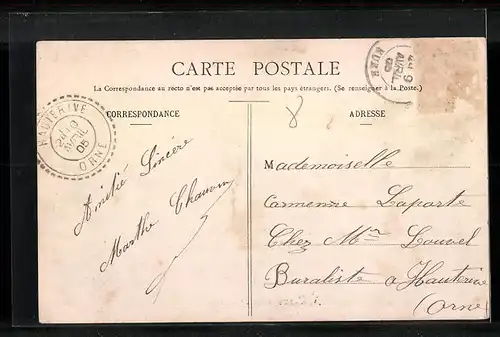 CARTE POSTALE
La Correspondance au recto n'est pas acceptée par tous les pays étrangers. (Se renseigner à la Poste.)
CORRESPONDANCE
ADRESSE
HAUTERIVE
AVRIL
05
ORNE
AVRIL
05
Amitié Sincère
Marthe Chauvin
Mademoiselle
Carmenne Laporte
Chez Mr Louvel
Buraliste a Hauterive
(Orne)